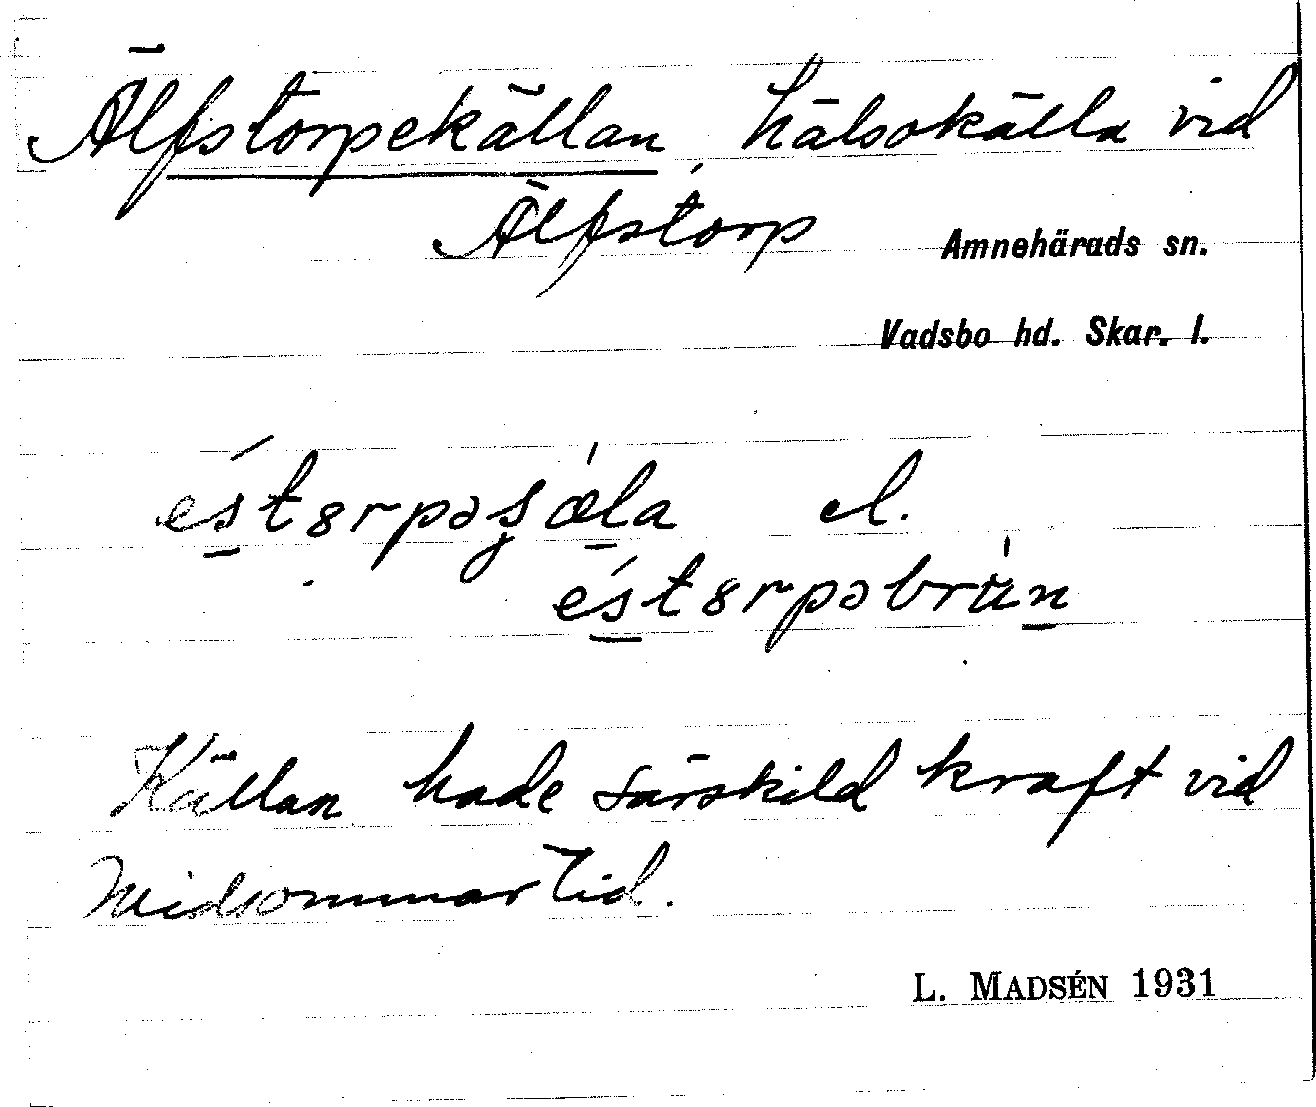 Älfstorpekällan, hälsokälla vid
Älfstorp
Amnehärads sn.
Vadsbo hd. Skar. l.
éstȣrpəʂæ̀la el.
éstȣrpəbrùn
Källan hade särskild kraft vid
Midsommartid.
L. MADSÉN 1931